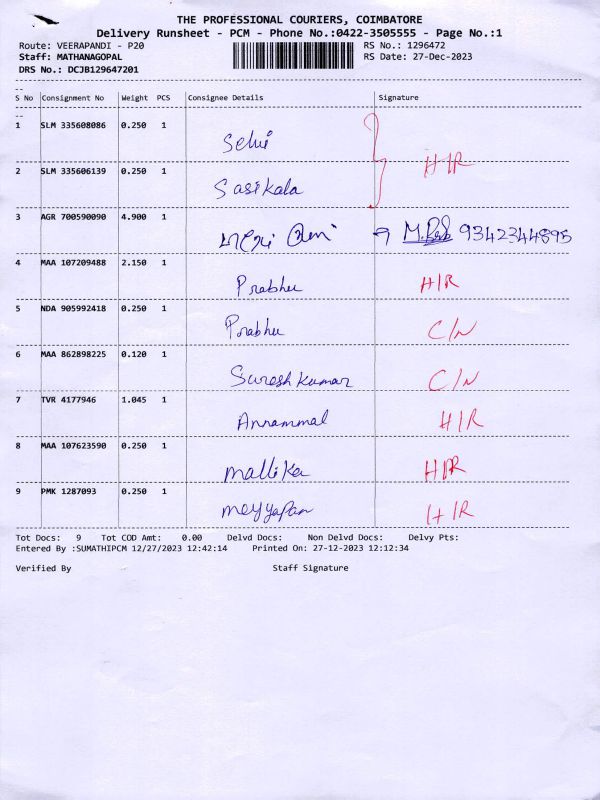 THE PROFESSIONAL COURIERS, COIMBATORE
Delivery Runsheet - PCM - Phone No.:0422-3505555 - Page No.:1
Route: VEERAPANDI - P20 RS No.: 1296472
Staff: MATHANAGOPAL RS Date: 27-Dec-2023
DRS No.: DCJB129647201
S No Consignment No Weight PCS Consignee Details Signature
1 SLM 335608086 0.250 1
Selvi
H/R
2 SLM 335606139 0.250 1
Sasikala
3 AGR 700590090 4.900 1
9342344895
4 MAA 107209488 2.150 1
Prabhu H/R
5 NDA 905992418 0.250 1
Prabhu C/N
6 MAA 862898225 0.120 1
Suresh Kumar C/N
7 TVR 4177946 1.045 1
Annammal H/R
8 MAA 107623590 0.250 1
mallika H/R
9 PMK 1287093 0.250 1
meyyapan H/R
Tot Docs: 9 Tot COD Amt: 0.00 Delvd Docs: Non Delvd Docs: Delvy Pts:
Entered By :SUMATHIPCM 12/27/2023 12:42:14 Printed On: 27-12-2023 12:12:34
Verified By Staff Signature